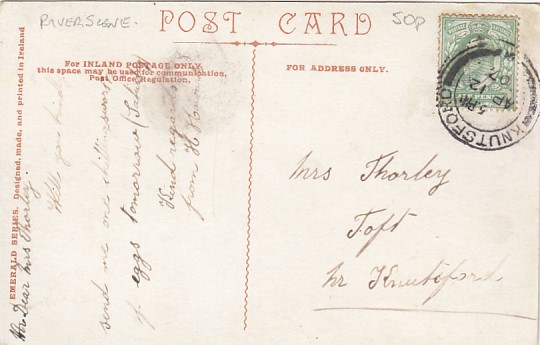 RIVER SCENE.
50p
POST CARD
For INLAND POSTAGE ONLY
this space may be used for communication,
Post Office Regulation.
FOR ADDRESS ONLY.
EMERALD SERIES. Designed, made, and printed in Ireland
My Dear Mrs Thorley
Will you kindly
send me one shillingsworth
of eggs tomorrow (Sat
Kind regards
from H
Mrs Thorley
Toft
nr Knutsford
KNUTSFORD
5 PM
AP 12
07